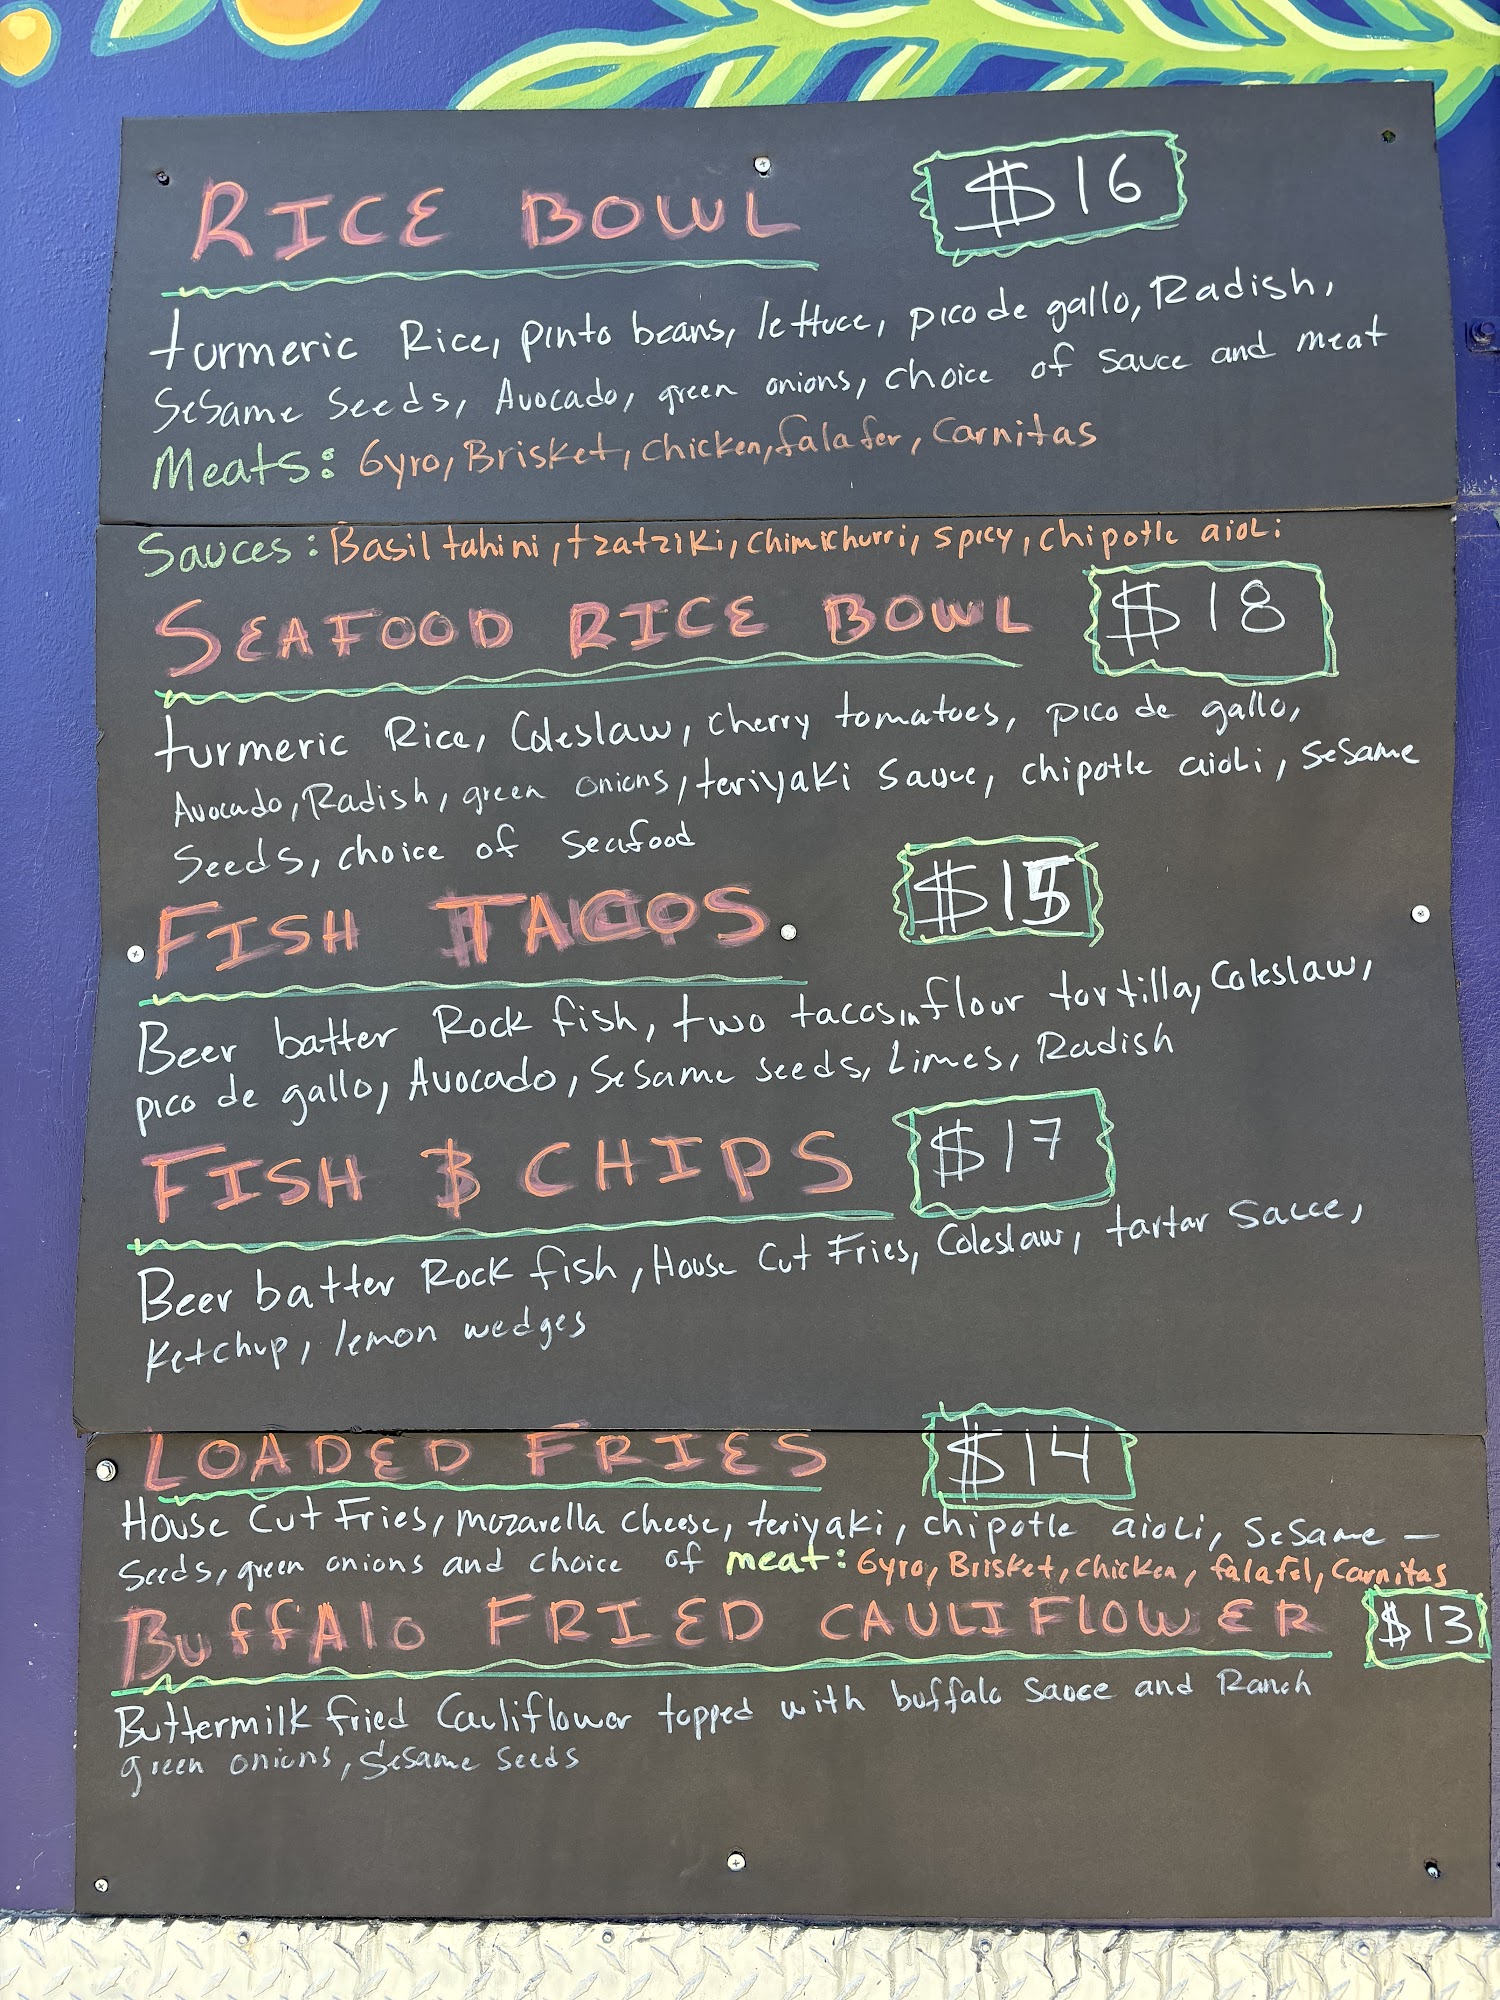 RICE BOWL $16
turmeric Rice, pinto beans, lettuce, pico de gallo, Radish,
Sesame Seeds, Avocado, green onions, choice of sauce and meat
Meats: Gyro, Brisket, chicken, falafer, Carnitas
Sauces: Basil tahini, tzatziki, chimichurri, spicy, chipotle aioli
SEAFOOD RICE BOWL $18
turmeric Rice, Coleslaw, cherry tomatoes, pico de gallo,
Avocado, Radish, green onions, teriyaki sauce, chipotle aioli, sesame
Seeds, choice of seafood
FISH TACOS $15
Beer batter Rock fish, two tacos in flour tortilla, Coleslaw,
pico de gallo, Avocado, Sesame seeds, Limes, Radish
FISH & CHIPS $17
Beer batter Rock fish, House Cut Fries, Coleslaw, tartar sauce,
Ketchup, lemon wedges
LOADED FRIES $14
House Cut Fries, mozarella cheese, teriyaki, chipotle aioli, Sesame -
Seeds, green onions and choice of meat: Gyro, Brisket, chicken, falafel, Carnitas
BUFFALO FRIED CAULIFLOWER $13
Buttermilk fried Cauliflower topped with buffalo sauce and Ranch
green onions, Sesame seeds